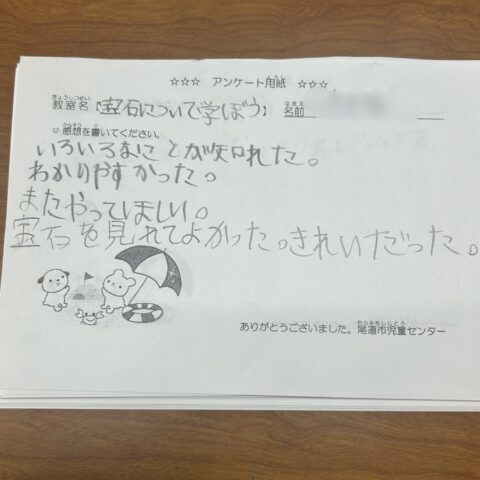 ☆☆☆ アンケート用紙 ☆☆☆
教室名『宝石について学ぼう』 名前
☺感想を書いてください。
いろいろなことが知れた。
わかりやすかった。
またやってほしい。
宝石を見れてよかった。きれいだった。
ありがとうございました。尾道市児童センター